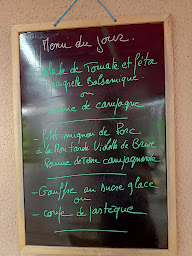 Menu du jour.
- Salade de Tomate et féta
vinaigrette Balsamique.
ou
- Terrine de campagne
- Filet mignon de Porc
à la Moutarde Violette de Brive
Pomme de Terre campagnarde
- Gauffre au sucre glace
ou
- coupe de pastèque